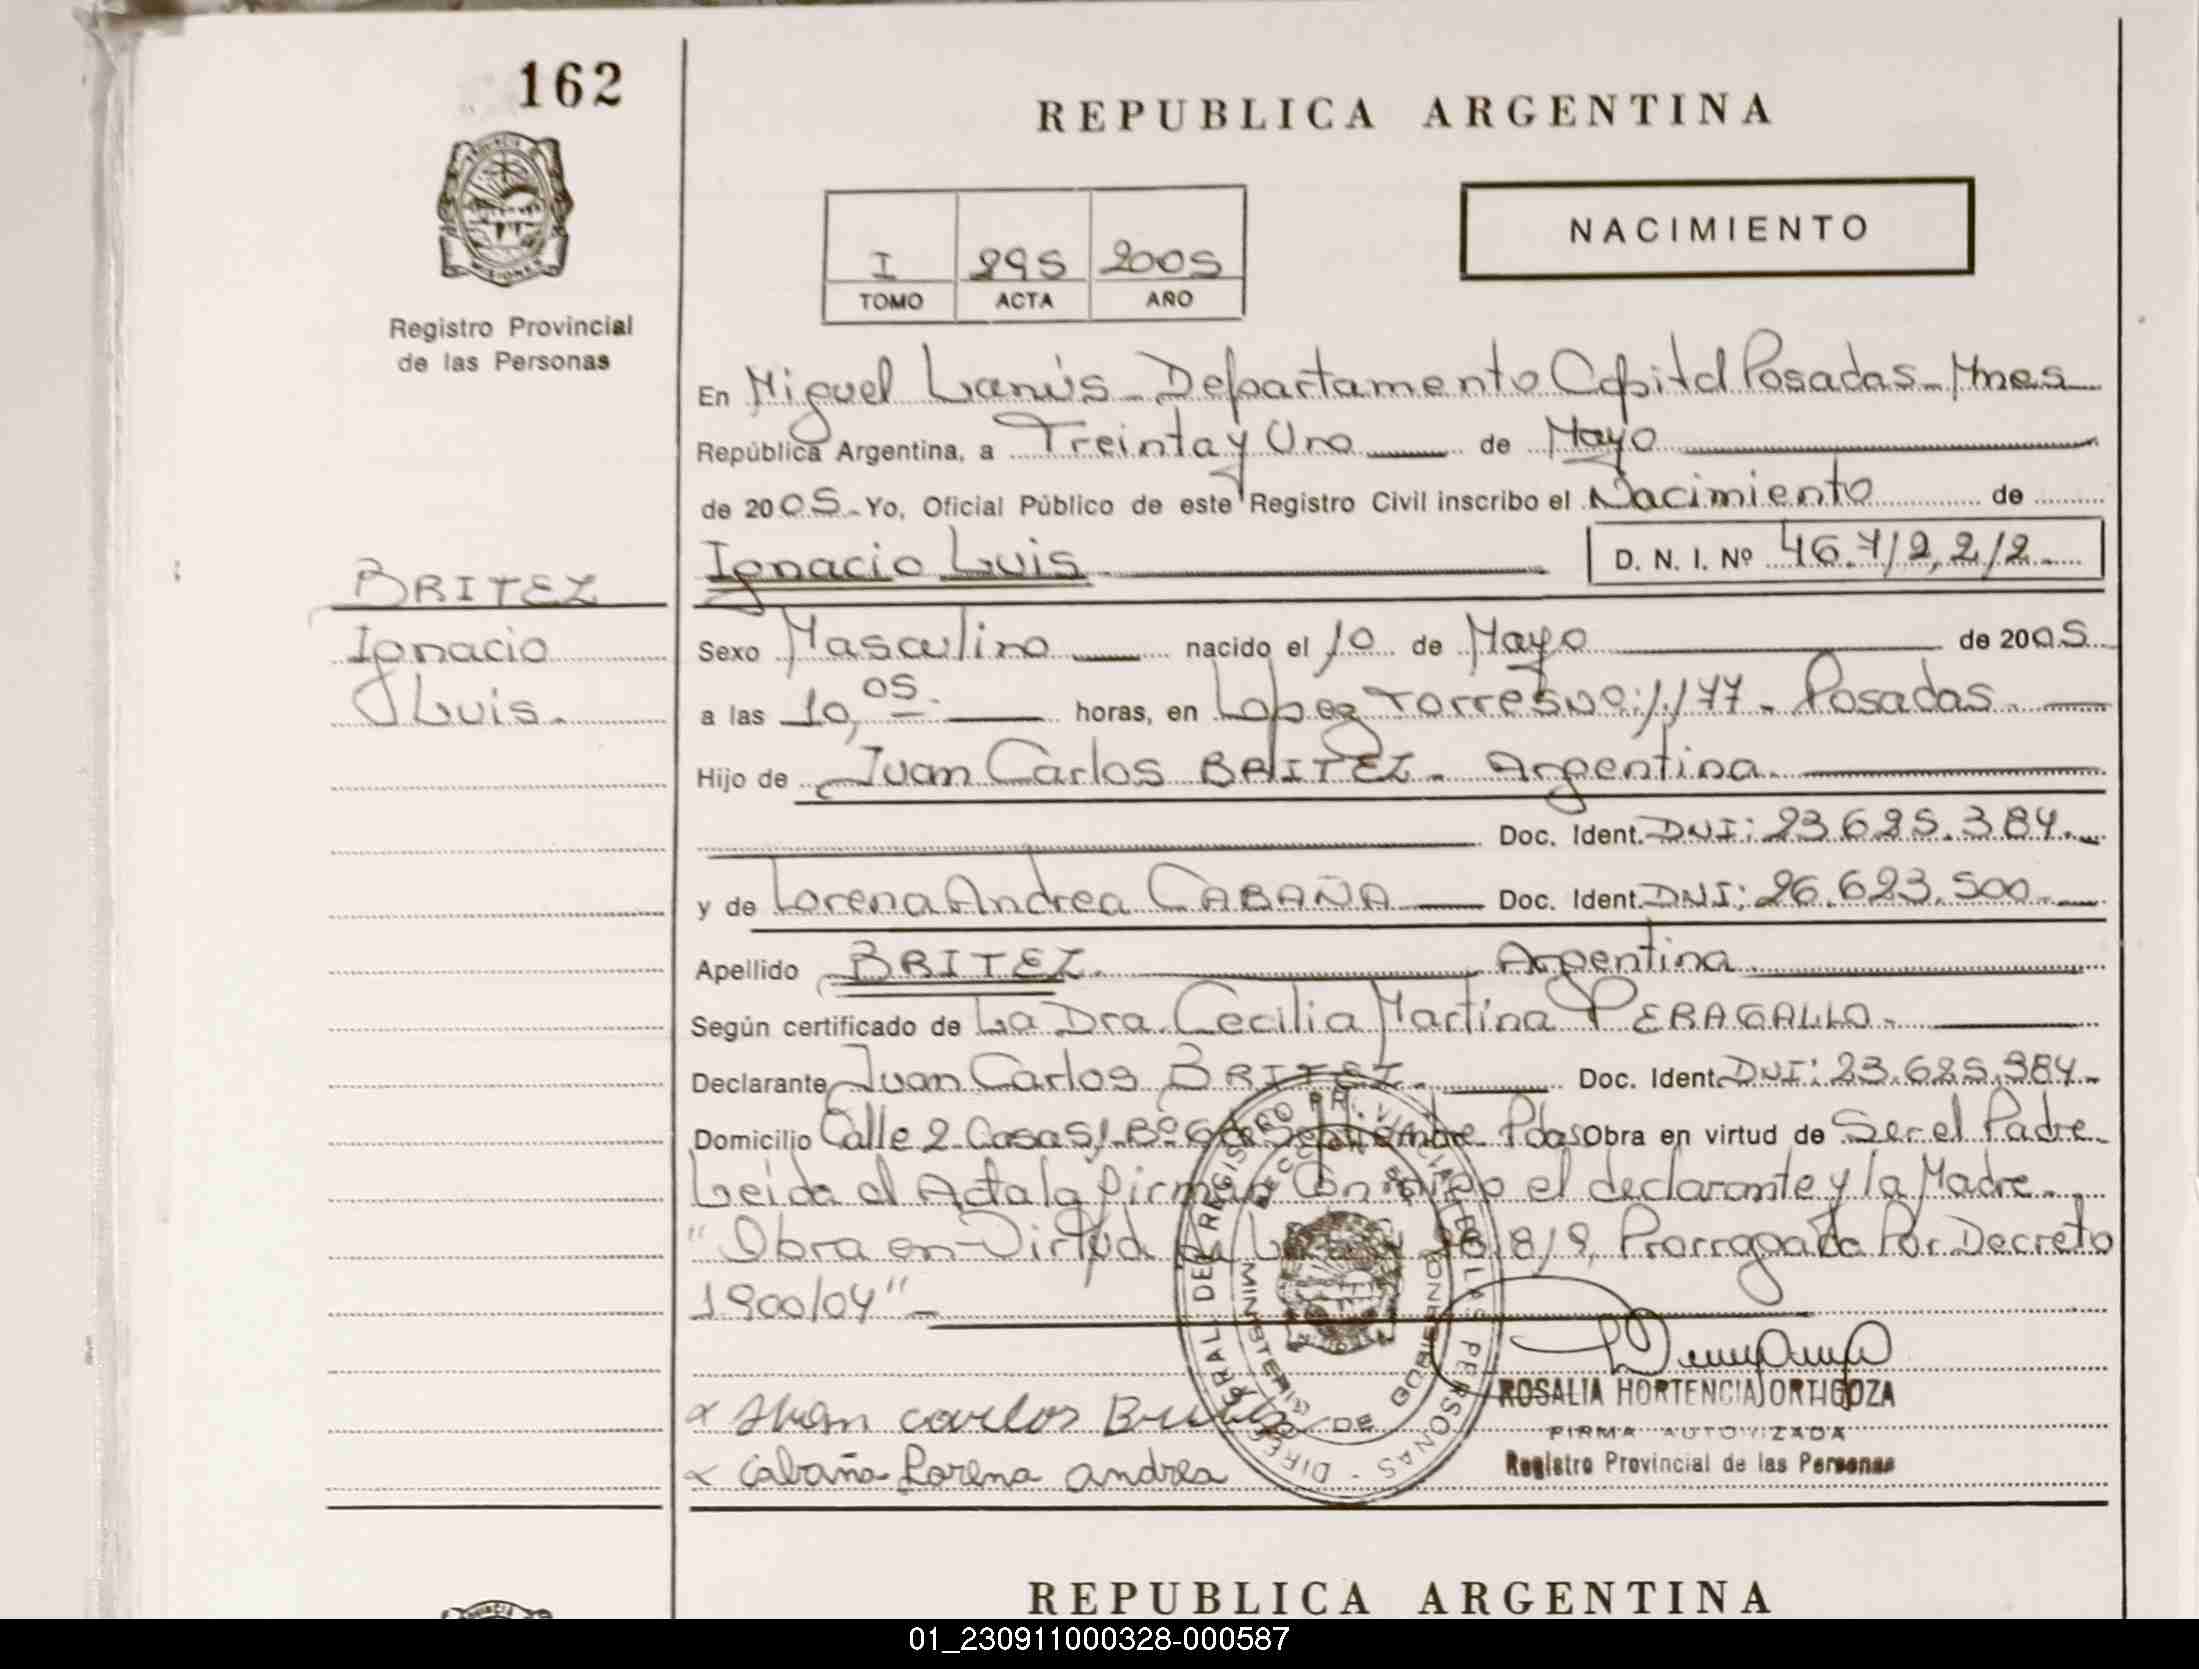 162
REPUBLICA ARGENTINA
PROVINCIA
MISIONES
Registro Provincial
de las Personas
NACIMIENTO
I 295 2005
TOMO ACTA AÑO
En Miguel Lanús - Departamento Capital Posadas - Mnes
República Argentina, a Treinta y Uno de Mayo
de 2005 - Yo, Oficial Público de este Registro Civil inscribo el Nacimiento de
Ignacio Luis D. N. I. Nº 46.712,212
BRITEZ
Ignacio
Luis.
Sexo Masculino nacido el 10 de Mayo de 2005
a las 10,05 horas, en Lopez Torres Nº: 1.177 - Posadas
Hijo de Juan Carlos BRITEZ - Argentina
Doc. Ident. DNI: 23.625.384.
y de Lorena Andrea CABAÑA Doc. Ident. DNI: 26.623.500
Apellido BRITEZ. Argentina
Según certificado de La Dra. Cecilia Martina PERAGALLO -
Declarante Juan Carlos BRITEZ. Doc. Ident. DNI: 23.625.384 -
Domicilio Calle 2 Casa 51 Bº Septiembre Pdas Obra en virtud de Ser el Padre
Leida el Acta la firman Conmigo el declarante y la Madre.
"Obra en Virtud 1819, Prorrogada Por Decreto
1900/04" -
x Juan carlos Britez
x Cabaña Lorena andrea
DIRECCION GENERAL DEL REGISTRO PROVINCIAL DE LAS PERSONAS
MINISTERIO DE GOBIERNO
ROSALIA HORTENCIA ORTIGOZA
FIRMA AUTORIZADA
Registro Provincial de las Personas
REPUBLICA ARGENTINA
01_230911000328-000587